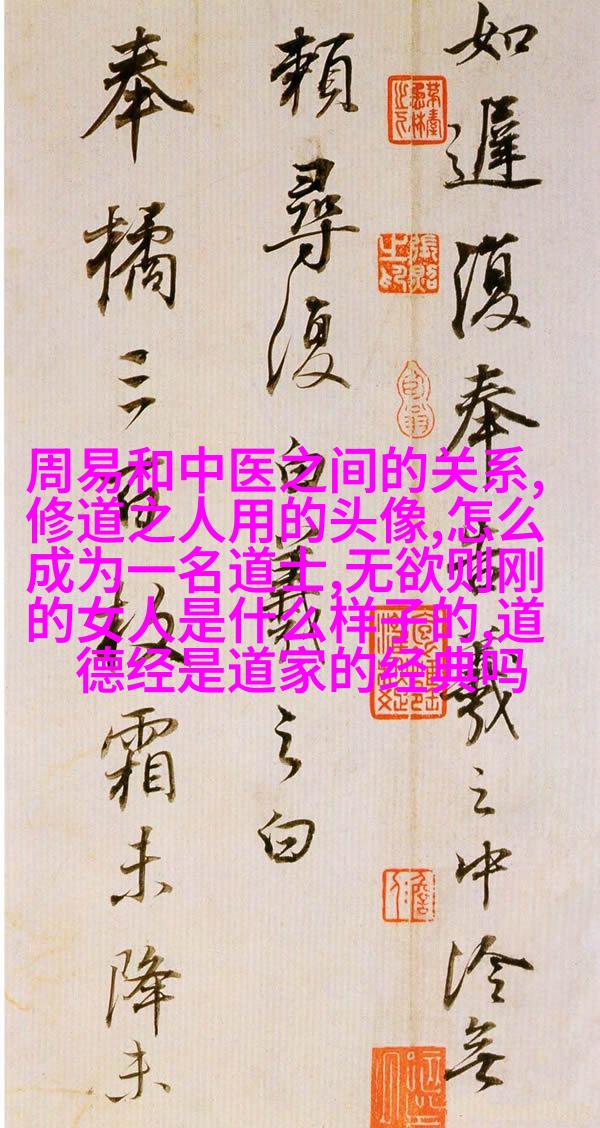 周易和中医之间的关系,
修道之人用的头像,怎么
成为一名道士,无欲则刚
的女人是什么样子的,道
德经是道家的经典吗
如遲復奉告羲之中冷無
賴尋復白羲之白
奉橘三百枚霜未降未